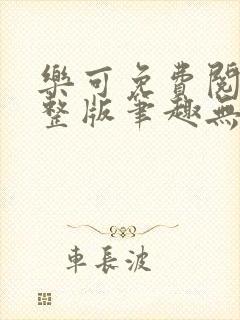 樂可免費閱
整版筆趣無
車長波